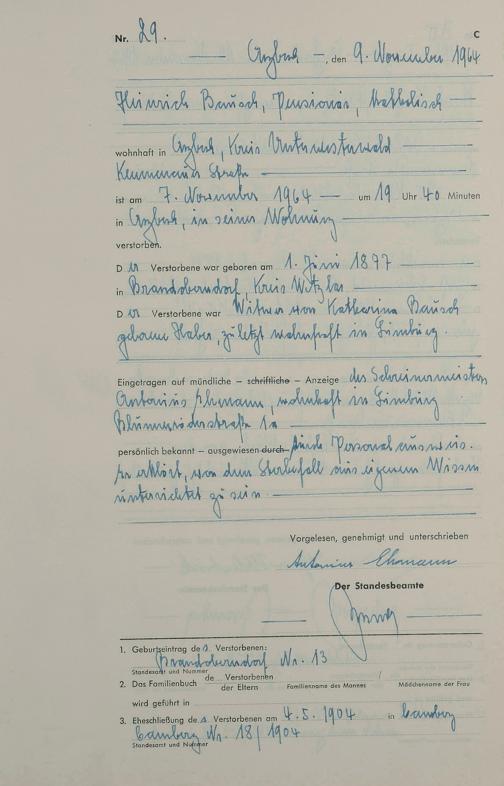 Nr. 29. C
Arzbach, den 9. November 1964
Heinrich Bausch, Pensionär, katholisch
wohnhaft in Arzbach, Kreis Unterwesterwald
Kemmenauer Straße
ist am 7. November 1964 um 19 Uhr 40 Minuten
in Arzbach, in seiner Wohnung
verstorben.
Der Verstorbene war geboren am 1. Juni 1897
in Brandoberndorf, Kreis Wetzlar
Der Verstorbene war Witwer von Katharina Bausch
geborene Haber, zuletzt wohnhaft in Limburg.
Eingetragen auf mündliche – schriftliche – Anzeige des Schreinermeisters
Antonius Ehmann, wohnhaft in Limburg
Blumenröderstraße 1a
persönlich bekannt – ausgewiesen durch durch Personalausweis.
Er erklärt, von dem Sterbefall aus eigenem Wissen
unterrichtet zu sein.
Vorgelesen, genehmigt und unterschrieben
Antonius Ehmann
Der Standesbeamte
1. Geburtseintrag des Verstorbenen:
Brandoberndorf Nr. 13
Standesamt und Nummer
2. Das Familienbuch de Verstorbenen / der Eltern Familienname des Mannes Mädchenname der Frau
wird geführt in
3. Eheschließung des Verstorbenen am 4.5.1904 in Camberg
Camberg Nr. 18/1904
Standesamt und Nummer